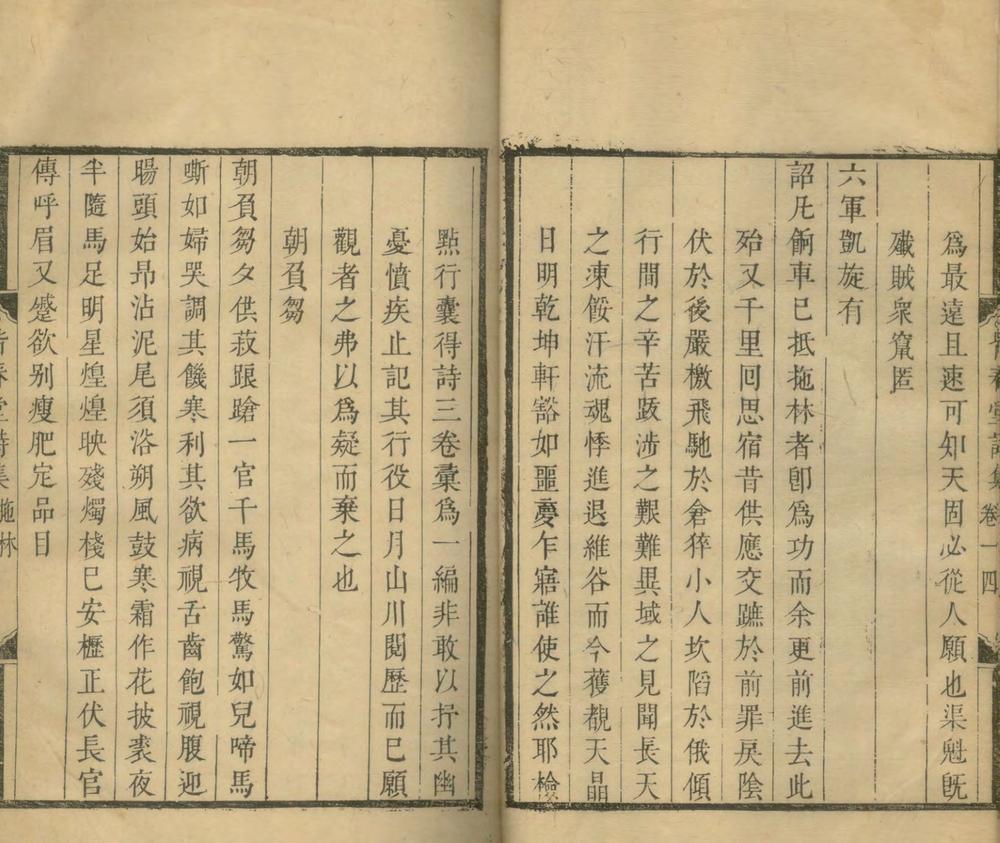 爲最遠且速可知天固必從人願也渠魁旣
殲賊衆竄匿
六軍凱旋有
詔凡餉車已抵拖林者卽爲功而余更前進去此
殆又千里回思宿昔供應交蹠於前罪戾陰
伏於後嚴檄飛馳於倉猝小人坎陷於俄傾
行間之辛苦跋涉之艱難異域之見聞長天
之凍餒汗流魂悸進退維谷而今獲覩天晶
日明乾坤軒豁如噩夢乍寤誰使之然耶檢
點行囊得詩三卷彚爲一編非敢以抒其幽
憂憤疾止記其行役日月山川閱歷而已願
觀者之弗以爲疑而棄之也
朝負芻
朝負芻夕供菽踉蹌一官千馬牧馬驚如兒啼馬
嘶如婦哭調其饑寒利其欲病視舌齒飽視腹迎
暘頭始昂沾泥尾須浴朔風鼓寒霜作花披裘夜
半隨馬足明星煌煌映殘燭棧已安櫪正伏長官
傳呼眉又蹙欲别瘦肥定品目
春堂詩集
卷一
四
春堂詩集
拖林